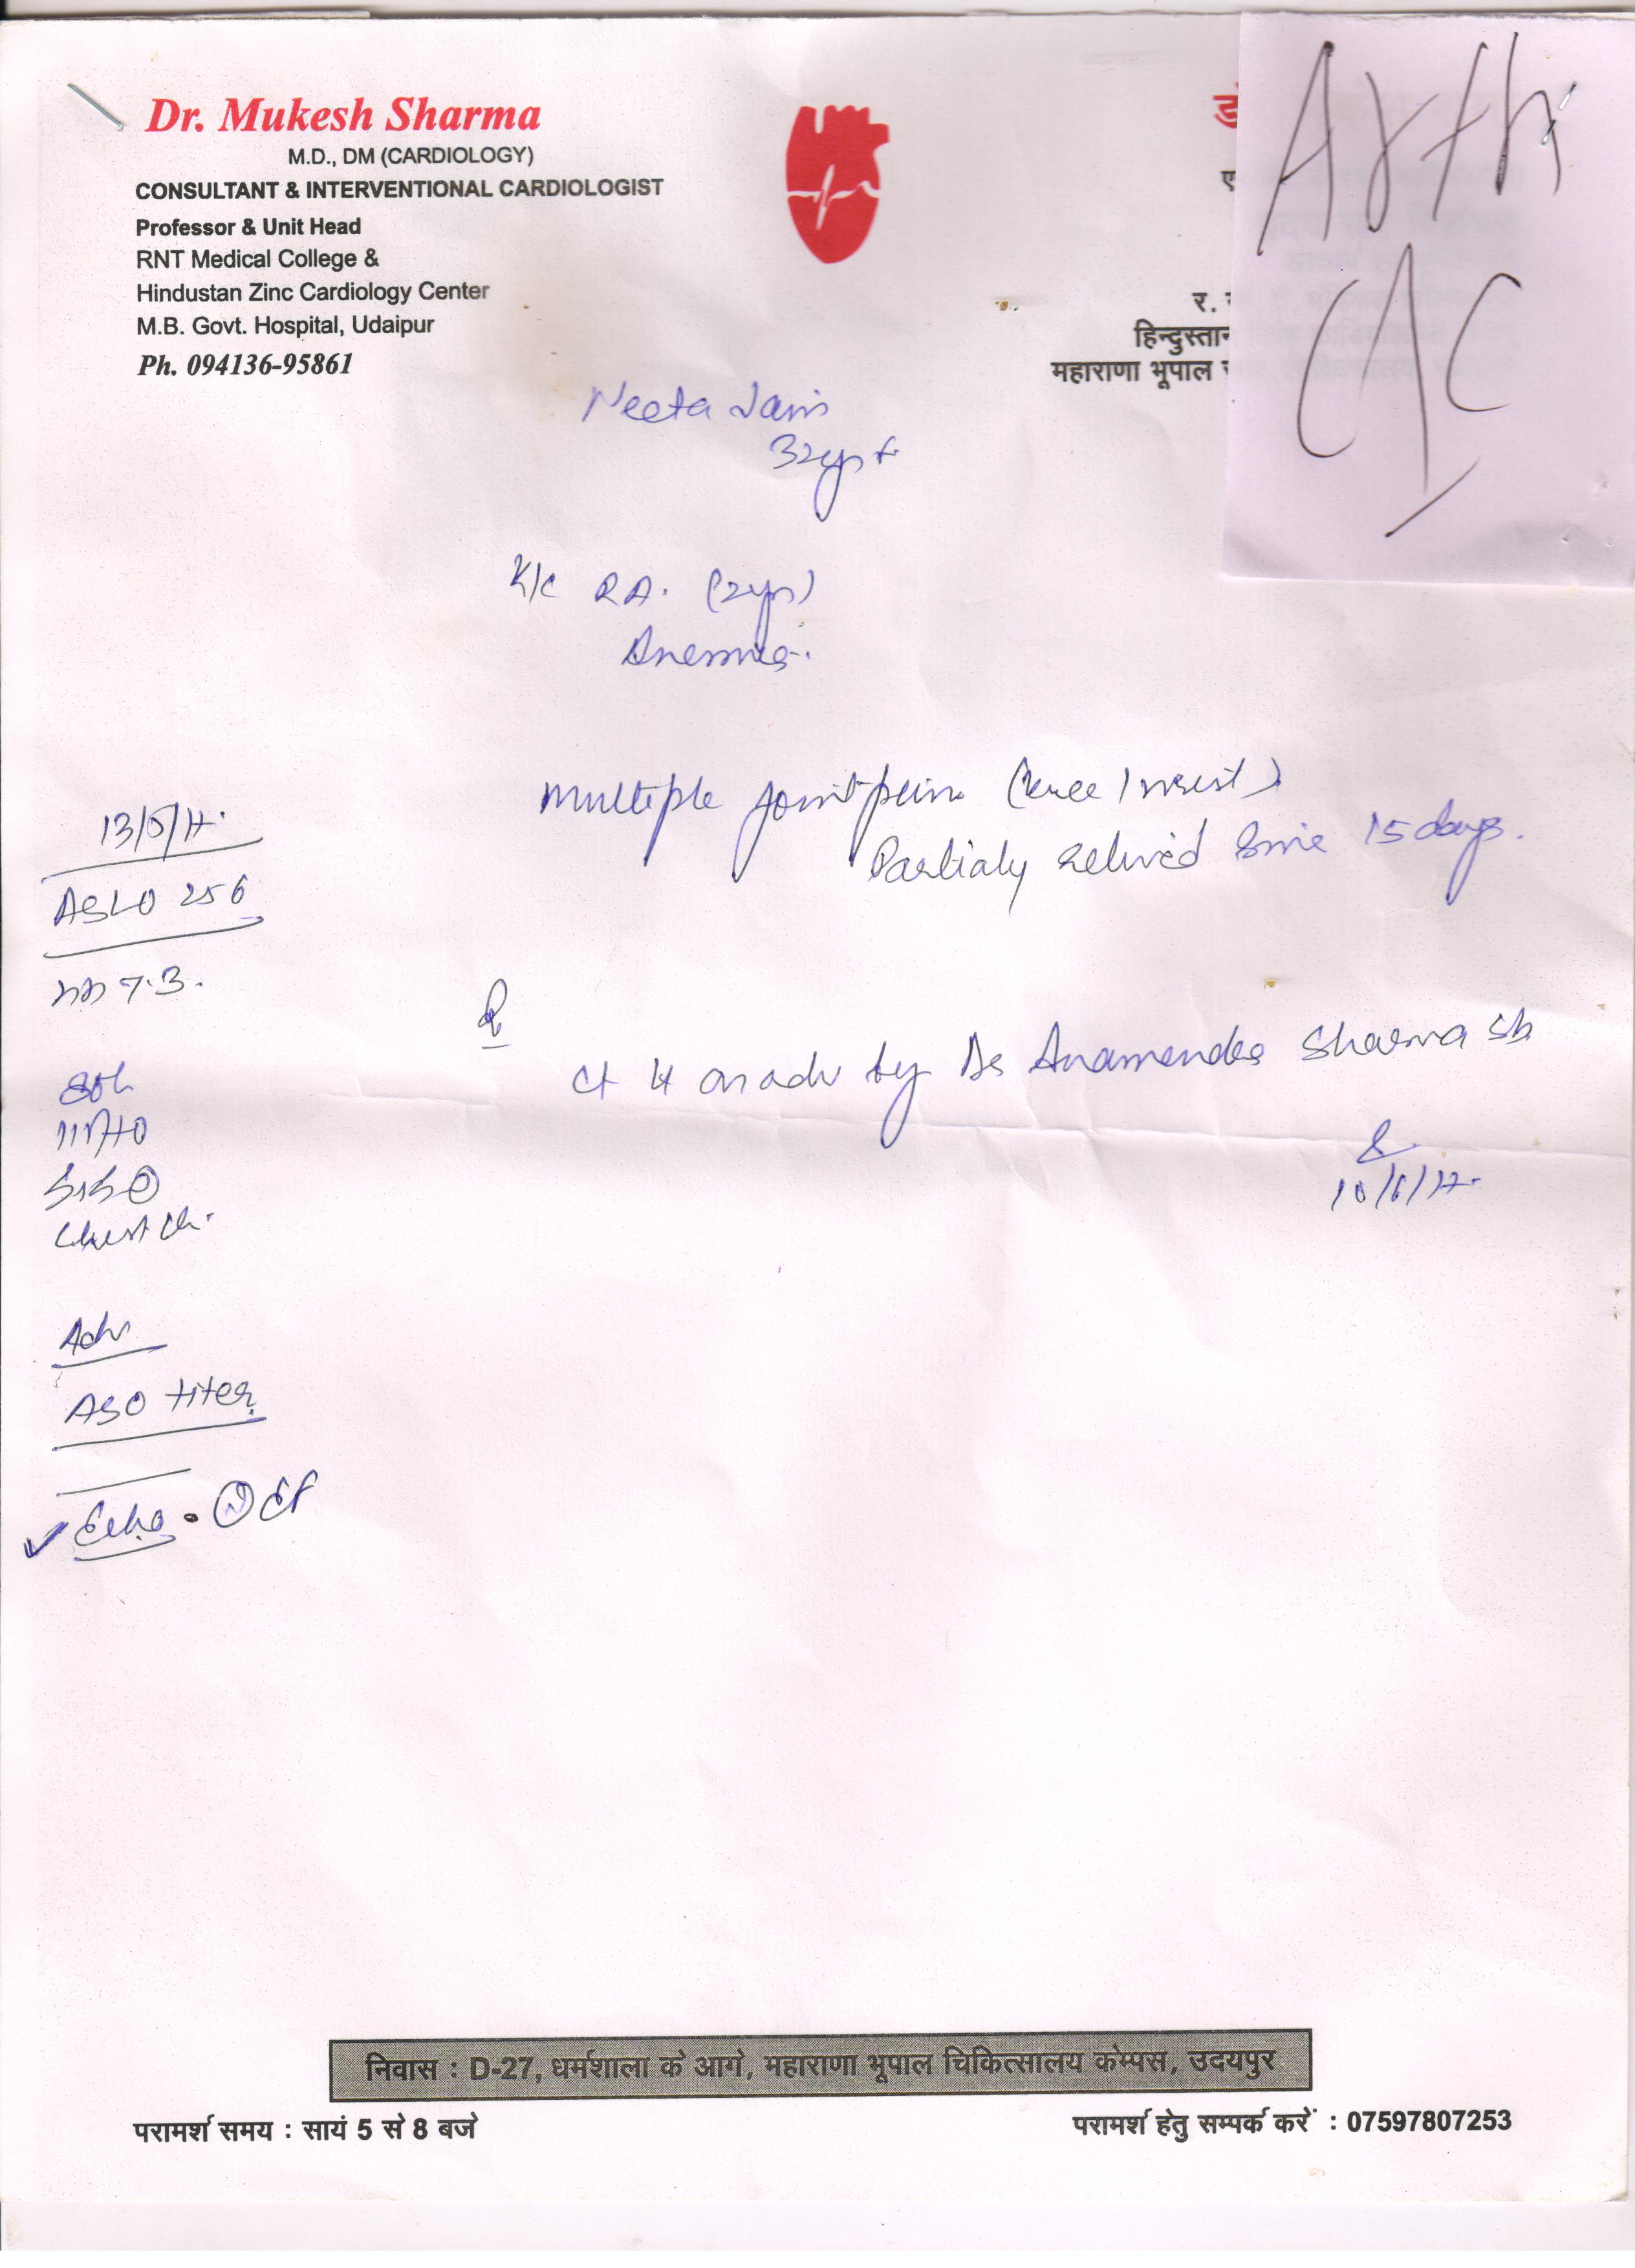 Dr. Mukesh Sharma
M.D., DM (CARDIOLOGY)
CONSULTANT & INTERVENTIONAL CARDIOLOGIST
Professor & Unit Head
RNT Medical College &
Hindustan Zinc Cardiology Center
M.B. Govt. Hospital, Udaipur
Ph. 094136-95861
डॉ
र.
हिन्दुस्तान
महाराणा भूपाल
Arth
Neeta Jain
32yr f
K/c RA. (2yr)
Anemia.
Multiple joint pain (knee / wrist)
Partialy relived Sinc 15 days.
13/5/17.
ASLO 256
7.3.
R
Ct on adv by Dr Sharma
10/6/17.
80h
Chest
Adv
ASO titer
Echo. N EF
निवास : D-27, धर्मशाला के आगे, महाराणा भूपाल चिकित्सालय केम्पस, उदयपुर
परामर्श समय : सायं 5 से 8 बजे
परामर्श हेतु सम्पर्क करें : 07597807253